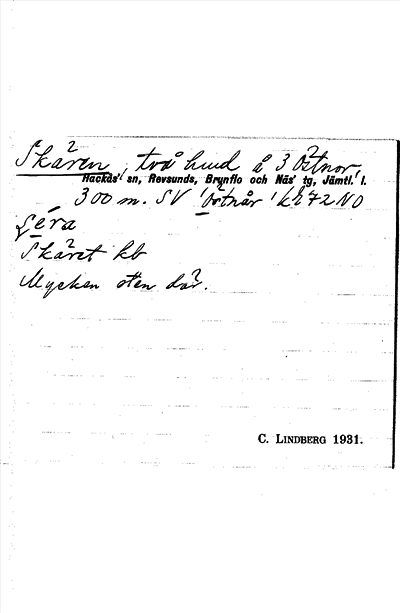 Skären, två hmd å 3 Östnor,
Hackås' sn, Revsunds, Brynflo och Näs' tg, Jämtl. l.
300 m. SV Östnår
Skäret kb
Mycken sten där.
C. LINDBERG 1931.